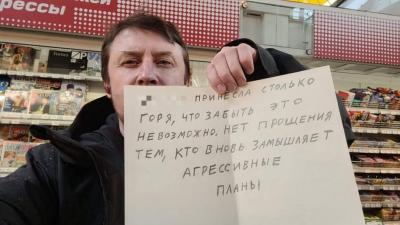 рессы
ПРИНЕСЛА СТОЛЬКО
ГОРЯ, ЧТО ЗАБЫТЬ ЭТО
НЕВОЗМОЖНО. НЕТ ПРОЩЕНИЯ
ТЕМ, КТО ВНОВЬ ЗАМЫШЛЯЕТ
АГРЕССИВНЫЕ
ПЛАНЫ